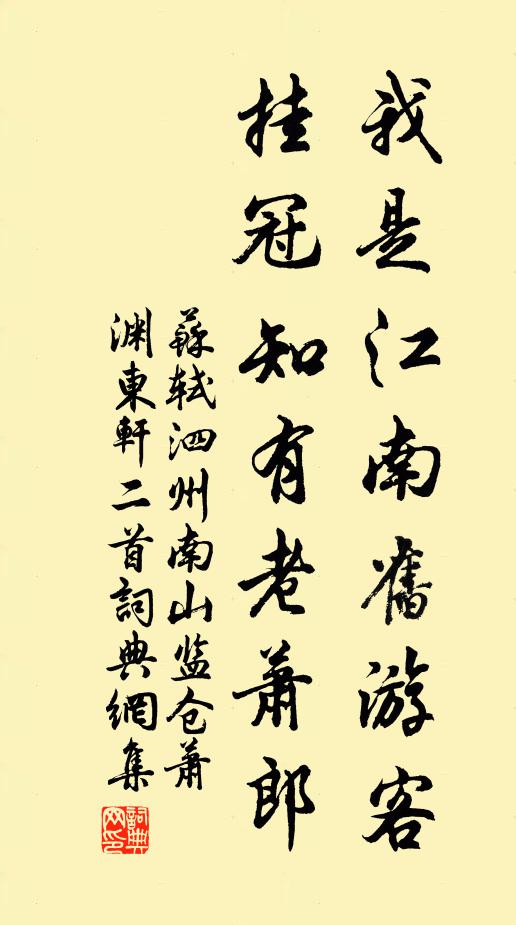 我是江南舊游客
挂冠知有老蕭郎
蘇軾泗州南山监仓蕭
渊東軒二首詞典網集
詞典网印